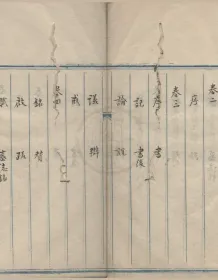 卷二
序
卷三
序 書
記 書後
論 說
議 辨
戒
卷四
銘 贊
啟 跋
墓誌銘